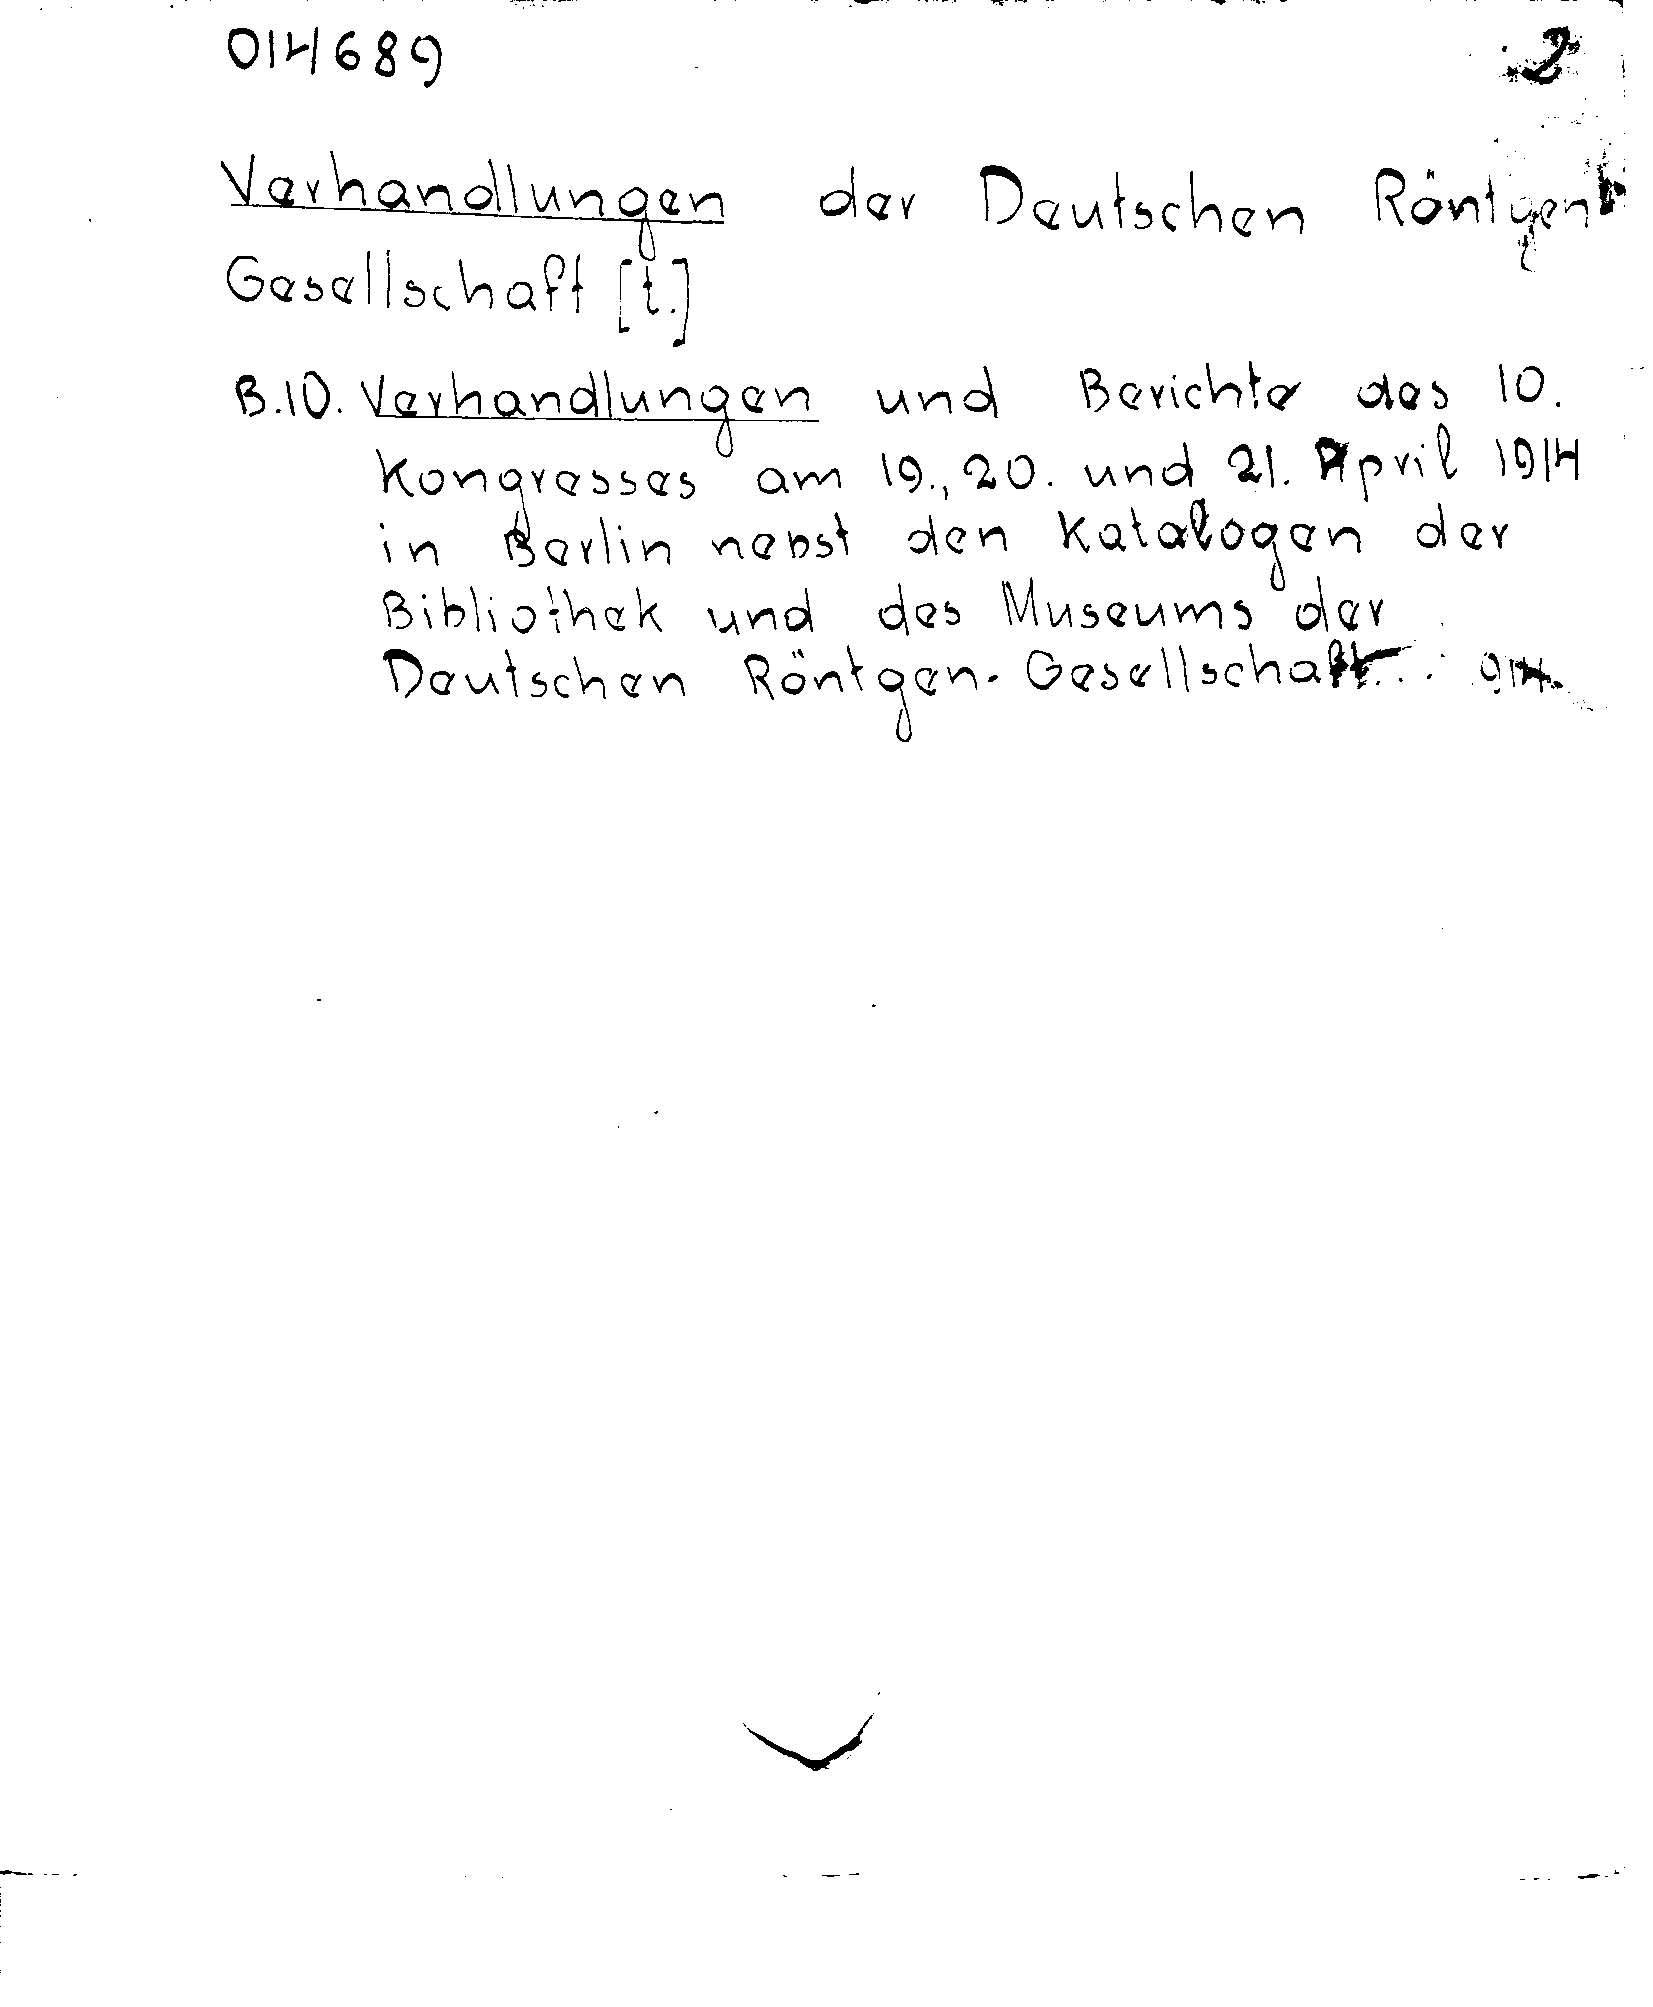 014689 2
Verhandlungen der Deutschen Röntgen
Gesellschaft [t.]
B.10. Verhandlungen und Berichte des 10.
Kongresses am 19., 20. und 21. April 1914
in Berlin nebst den Katalogen der
Bibliothek und des Museums der
Deutschen Röntgen-Gesellschaft